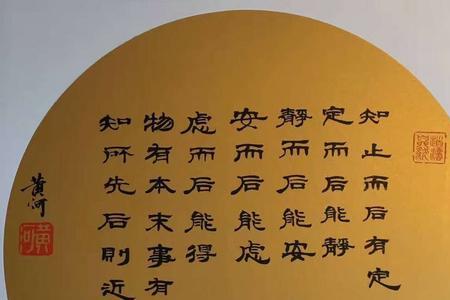 知止而后有定
定而后能静
静而后能安
安而后能虑
虑而后能得
物有本末事有
知所先后則近
黄河